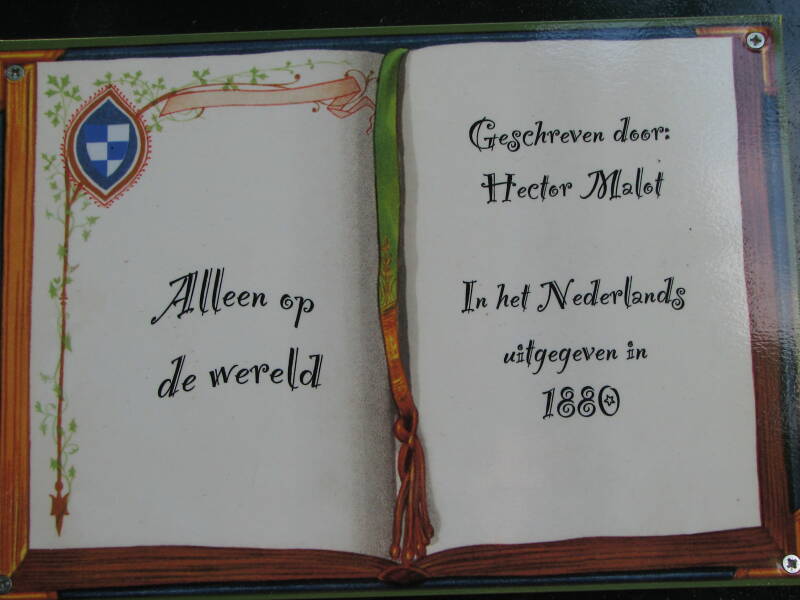 Alleen op
de wereld
Geschreven door:
Hector Malot
In het Nederlands
uitgegeven in
1880